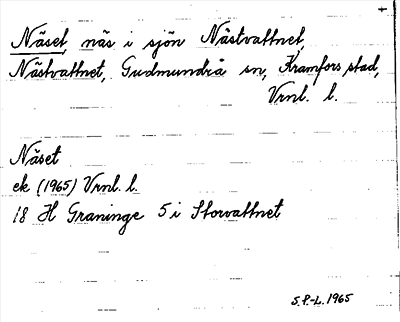 Näset, näs i sjön Nästvattnet,
Nästvattnet, Gudmundrå sn, Kramfors stad,
Vrnl. l.
Näset
ek (1965) Vrnl. l.
18 H Graninge 5 i Storvattnet
S.P-L. 1965